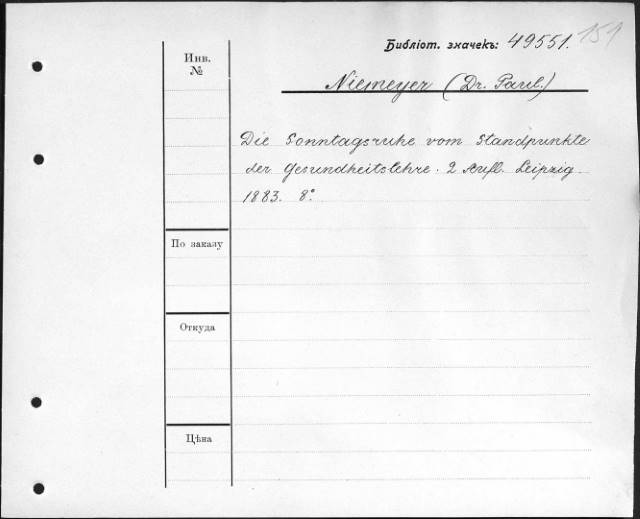 Библіот. значекъ: 49551. 159
Инв.
№
Niemeyer (Dr. Paul.)
Die Sonntagsruhe vom Standpunkte
der Gesundheitslehre. 2 Aufl. Leipzig.
1883. 8°.
По заказу
Откуда
Цѣна